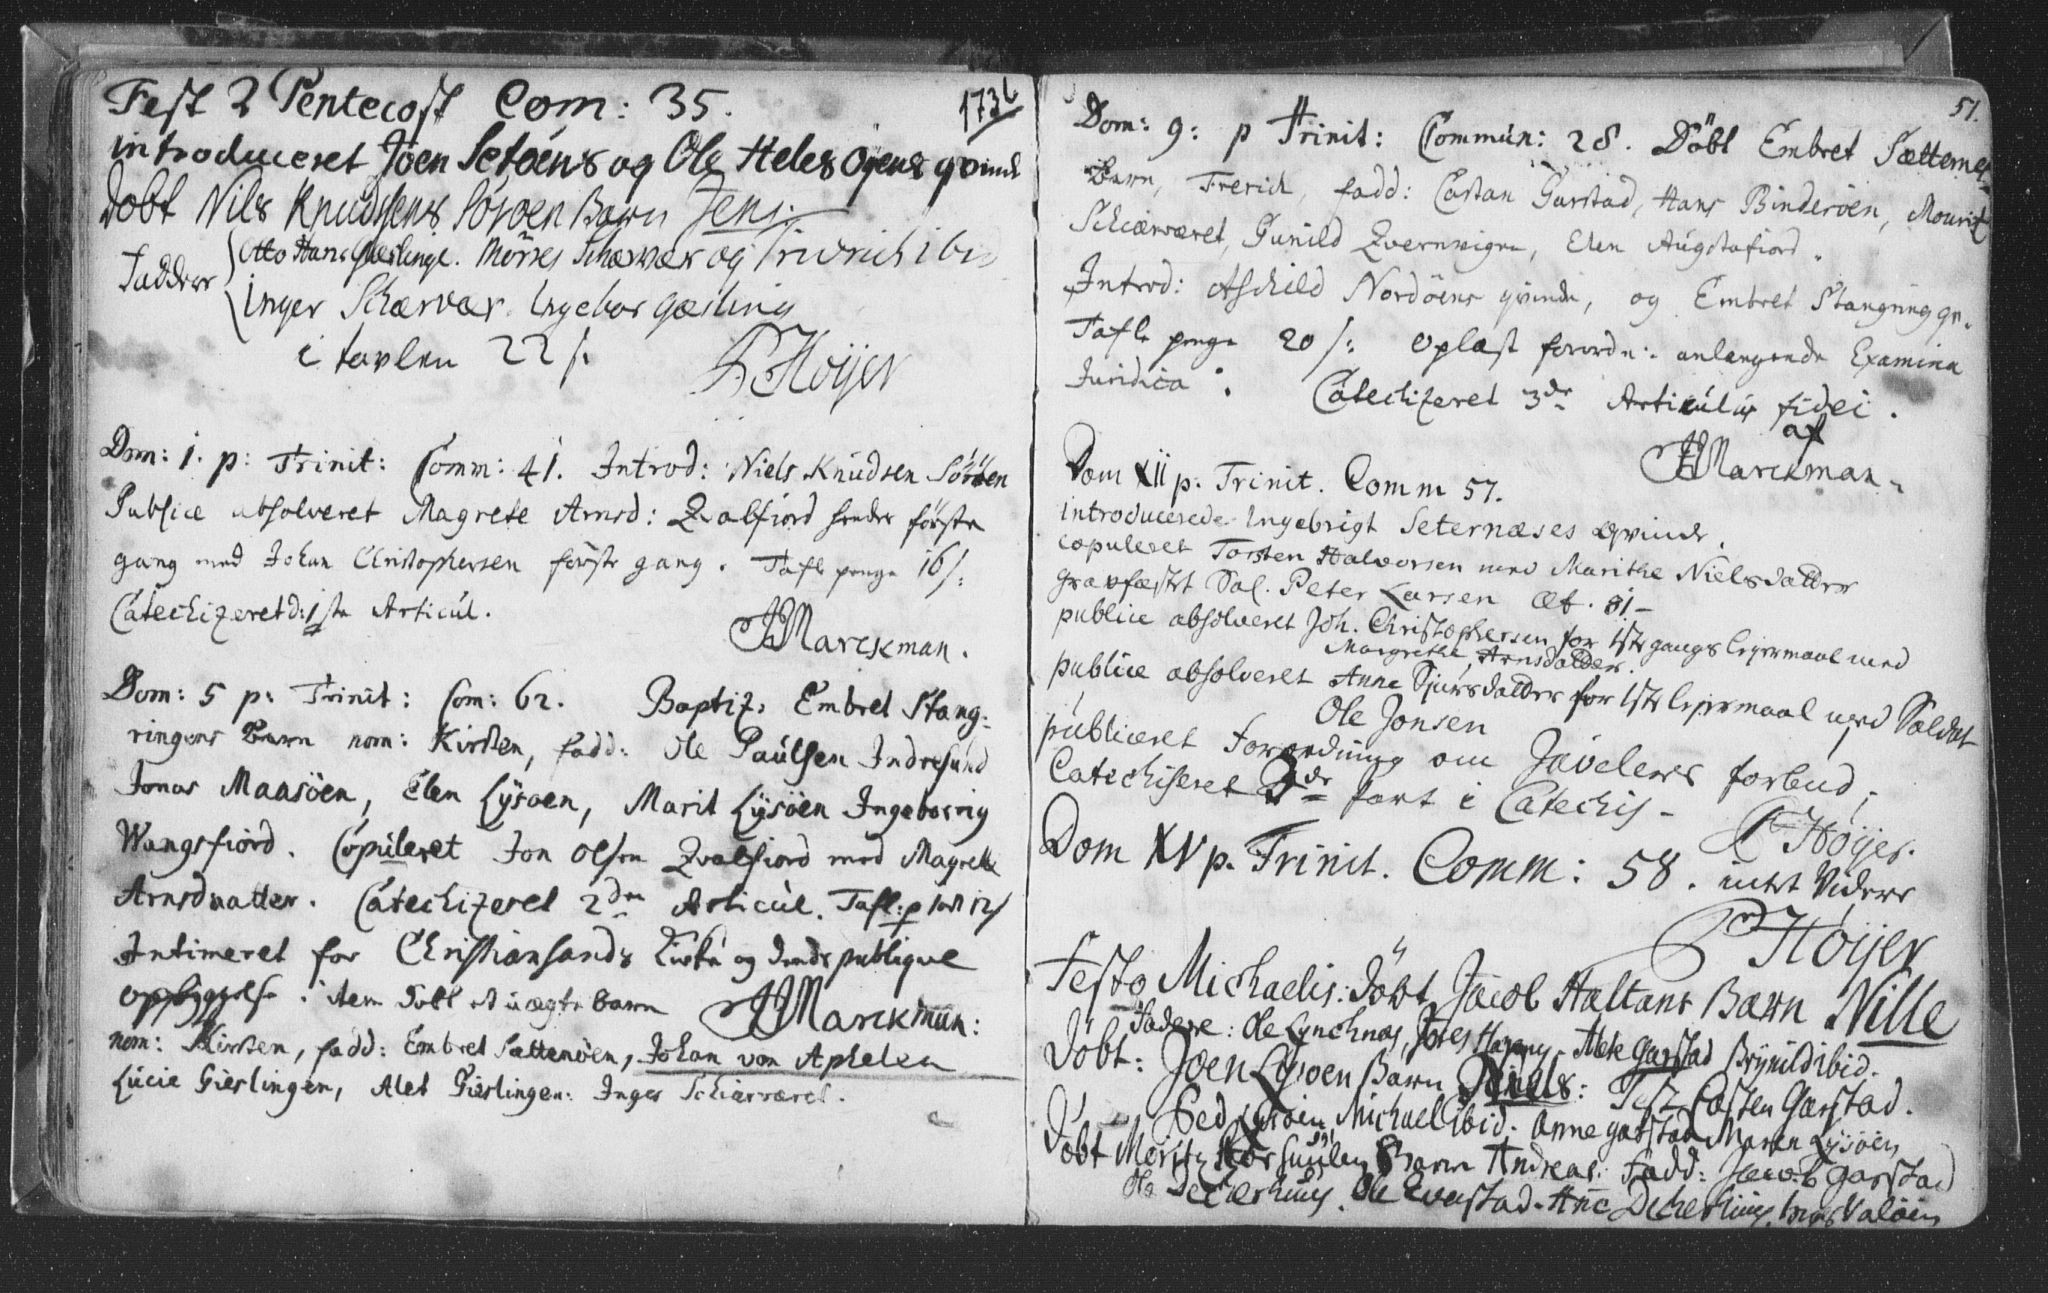 Fest 2 Pentecost Com: 35. 1736
introduceret Joen Setöens og Ole Helesöyens qvinde
Döbt Nils Knudssens Söröen Barn Jens.
Faddere Otto Hans Gieslinge. Mörres Schærvær og Fridrich ibid
Inger Schærvær. Ingebor gæsling
i tavlen 22 s:
P Höijer
Dom: 1. p: Trinit: Comm: 41. Introd: Niels Knudsen Söröen
Publice absolveret Magrete Arnsd: Qvalfiord hendes förste
gang med Johan Christophersen förste gang. Tafle penge 16 s:
Catechizeret d: 1ste Articul.
HMarckman.
Dom: 5 p: Trinit: Com: 62. Baptiz. Embret Stang-
ringens Barn nom: Kirsten, fadd: Ole Paulsen Indresund
Jonas Maasöen, Elen Lysöen, Marit Lysöen Ingeborrig
Wangsfiord. Copuleret Jon Olsen Qvalfiord med Magrete
Arnsdaatter. Catechizeret 2den Articul. Tafl: p
Intimeret for Christiansands Kirke og dends publique
opbyggelse. item Döbt et uægte barn HMarckman:
nom: Kirsten, fadd: Embret Sættenöen, Johan von Aphelen
Lucie Gieslingen, Alet Gieslingen: Inger Schiærværet.
51.
Dom: 9: p Trinit: Commun: 28. Döbt Embret Sætternes
Barn, Frerich, fadd: Castan Garstad, Hans Binderöen, Mouritz
Schiærværet, Gunild Qvernvigen, Elen Augstafiord.
Introd: Aschild Nordöens qvinde, og Embret Stangring qv.
Tafle penge 20 s: Oplæst forordn: anlangende Examina
Juridica. Catechizeret 3de Articulus fidei.
af
HMarckman.
Dom XII p. Trinit. Comm 57.
introducerede Ingebrigt Seternæses Qvinde.
copuleret Torsten Halvorsen med Marithe Nielsdatter
gravfæstet Sal. Peter Larsen æt. 81-
publice absolveret Joh. Christophersen for 1ste gangs leyermaal med
Margrethe Arnsdatter.
publice absolveret Anne Sjursdatter for 1ste lejermaal med Soldat
Ole Jonsen
publiceret Forordning om Javelers forbud;
Catechiseret 3de Part i Catechis-
P Höijer.
Dom XV p. Trinit. Comm: 58. intet Videre
P Höijer
Festo Michaelis: Döbt Jacob Hæltans Barn Nille
Fadere: Ole Lynchnæs, Alete Garstad Brynild ibid.
Döbt: Joen Lysöen Barn Niels: Test Casten Garstad.
Ped Lysöen, Michael ibid. Anne garstad Maren Lysöen
Döbt Moritz Barn Andreas. Fadd: Jacob Garstad
Ole Ole Evastad. Ane Valöen